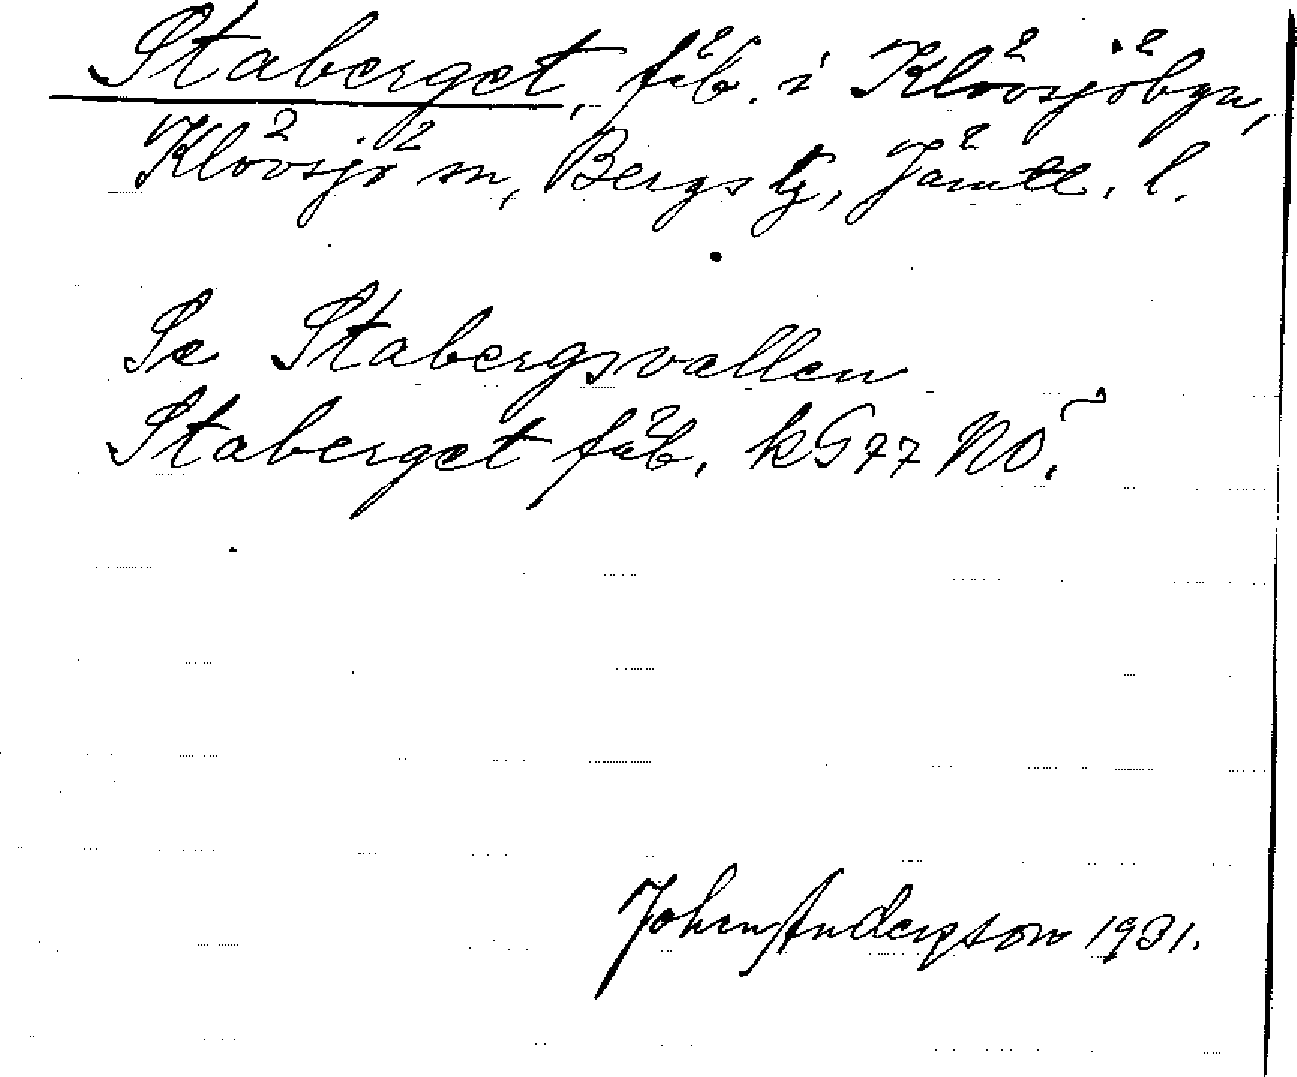 Staberget, fäb. i Klövsjöbyn,
Klövsjö sn, Bergs tg, Jämtl. l.
Se Stabergsvallen
Staberget fäb. kG77 NÖ.
John Andersson 1931.